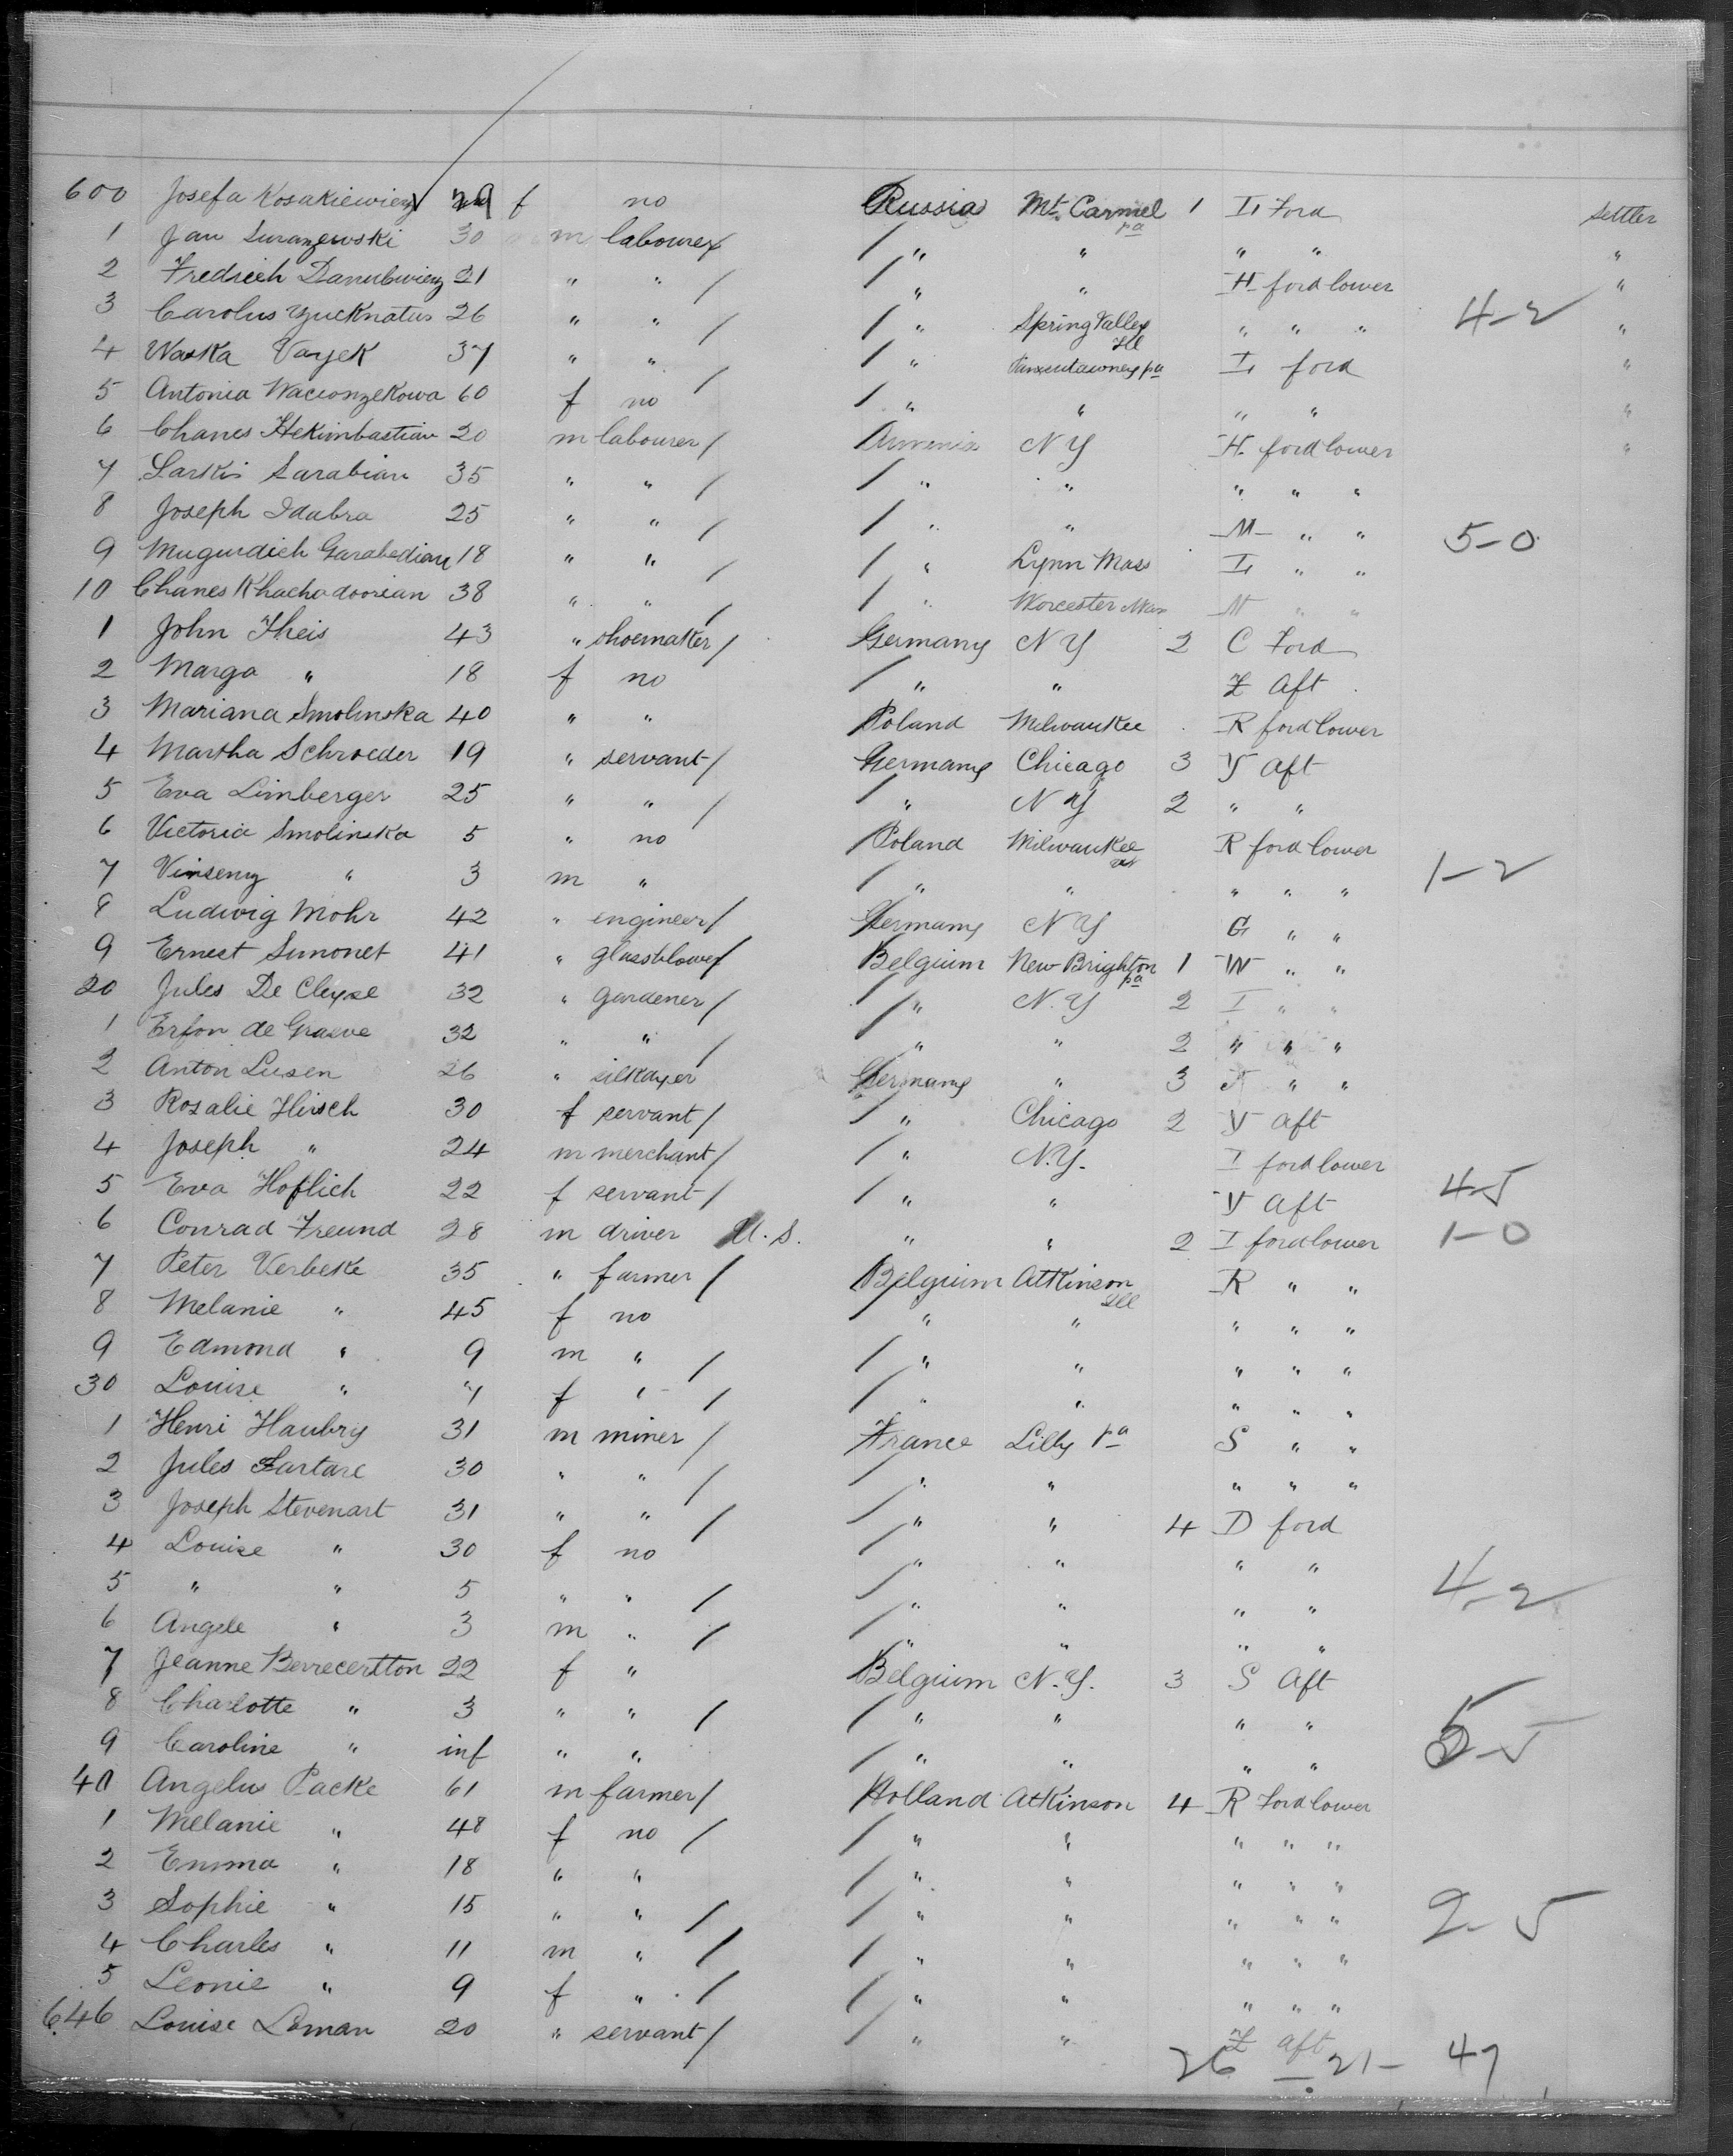 600 Josefa Kosakiewicz 29 f no Russia Mt. Carmel pa 1 L Ford settler
1 Jan Surazewski 30 m labourer / " " " " "
2 Fredrich Danubwicz 21 " " / " " H ford lower "
3 Carolus Yucknatus 26 " " / " Spring Valley Ill " " " 4-2 "
4 Waska Vayek 37 " " / " Punxsutawney pa L ford "
5 Antonia Wacionzekowa 60 f no / " " " " "
6 Chanes Hekimbastian 20 m labourer / Armenia N Y H. ford lower "
7 Sarkis Sarabian 35 " " / " " " " "
8 Joseph Idabra 25 " " / " " M " " 5-0
9 Mugurdich Garabedian 18 " " / " Lynn Mass L " "
10 Chanes Khachadoorian 38 " " / " Worcester Mass M " "
1 John Theis 43 " shoemaker / Germany N Y 2 C Ford
2 Marga " 18 f no / " " Z Aft
3 Mariana Smolinska 40 " " Poland Milwaukee R ford lower
4 Martha Schroeder 19 " servant / Germany Chicago 3 Y Aft
5 Eva Limberger 25 " " / " N Y 2 " "
6 Victoria Smolinska 5 " no / Poland Milwaukee R ford lower
7 Vinseny " 3 m " / " " " " " 1-2
8 Ludwig Mohr 42 " engineer / Germany N Y G " "
9 Ernest Simonet 41 " glassblower / Belgium New Brighton pa 1 W " "
20 Jules De Cleyse 32 " gardener / " N.Y 2 I " "
1 Erfon de Graeve 32 " " / " " 2 " " "
2 Anton Lusen 26 " silkdyer Germany " 3 " "
3 Rosalie Hirsch 30 f servant / " Chicago 2 Y Aft
4 Joseph " 24 m merchant / " N.Y. I ford lower
5 Eva Hoflich 22 f servant / " " Y Aft 4-5
6 Conrad Freund 28 m driver U.S. " " 2 I ford lower 1-0
7 Peter Verbeke 35 " farmer / Belgium Atkinson Ill R " "
8 Melanie " 45 f no " " " " "
9 Edmond " 9 m " / " " " " "
30 Louise " 7 f " / " " " " "
1 Henri Haubry 31 m miner / France Lilly pa S " "
2 Jules Lartare 30 " " / " " " " "
3 Joseph Stevenart 31 " " / " " 4 D ford
4 Louise " 30 f no / " " " "
5 " " 5 " " / " " " " 4-2
6 Angele " 3 m " / " " " "
7 Jeanne Berrecertton 22 f " Belgium N.Y. 3 S Aft
8 Charlotte " 3 " " / " " " "
9 Caroline " inf " " / " " " "
40 Angelus Packe 61 m farmer / Holland Atkinson 4 R Ford lower
1 Melanie " 48 f no / " " " " "
2 Emma " 18 " " / " " " " "
3 Sophie " 15 " " / " " " " " 2-5
4 Charles " 11 m " / " " " " "
5 Leonie " 9 f " / " " " " "
646 Louise Loman 20 " servant / " " Z aft
26 - 21 - 47